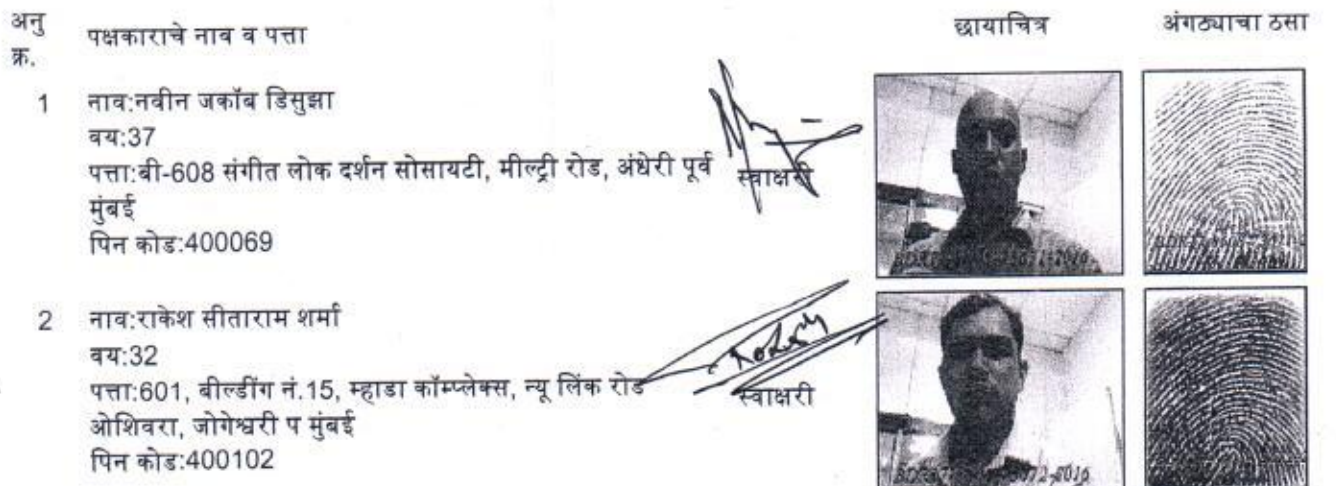 अनु क्र. पक्षकाराचे नाव व पत्ता छायाचित्र अंगठ्याचा ठसा
1 नाव:नवीन जकॉब डिसुझा
वय:37
पत्ता:बी-608 संगीत लोक दर्शन सोसायटी, मील्ट्री रोड, अंधेरी पूर्व
मुंबई
पिन कोड:400069
स्वाक्षरी
2 नाव:राकेश सीताराम शर्मा
वय:32
पत्ता:601, बील्डींग नं.15, म्हाडा कॉम्प्लेक्स, न्यू लिंक रोड
ओशिवरा, जोगेश्वरी प मुंबई
पिन कोड:400102
स्वाक्षरी